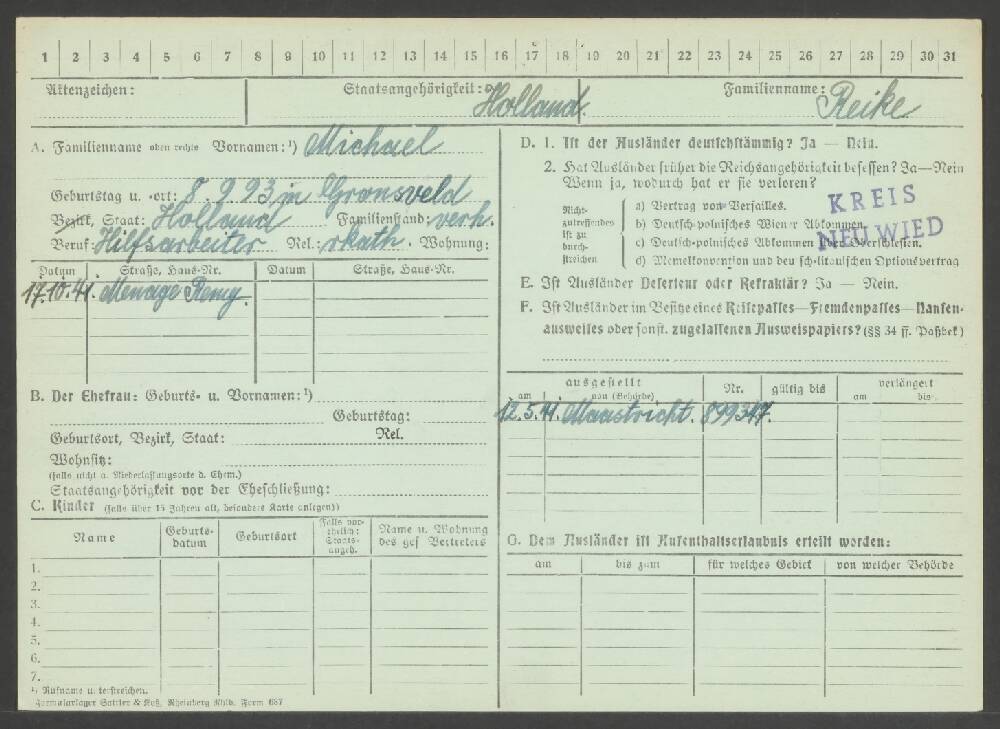 1 2 3 4 5 6 7 8 9 10 11 12 13 14 15 16 17 18 19 20 21 22 23 24 25 26 27 28 29 30 31
Aktenzeichen: Staatsangehörigkeit: Holland. Familienname: Reike
A. Familienname oben rechts Vornamen:¹) Michael
Geburtstag u. -ort: 8.9.93 in Gronsveld
Bezirk, Staat: Holland Familienstand: verh.
Beruf: Hilfsarbeiter Rel.: r kath. Wohnung:
Datum Straße, Haus-Nr. Datum Straße, Haus-Nr.
17.10.41. Menage Remy.
B. Der Ehefrau: Geburts- u. Vornamen:¹)
Geburtstag:
Geburtsort, Bezirk, Staat: Rel.
Wohnsitz:
(falls nicht a. Niederlassungsorte d. Ehem.)
Staatsangehörigkeit vor der Eheschließung:
C. Kinder (falls über 15 Jahren alt, besondere Karte anlegen))
Name Geburts-datum Geburtsort Falls vor-ehelich: Staats-angeh. Name u. Wohnung des ges Vertreters
1.
2.
3.
4.
5.
6.
7.
¹) Rufname unterstreichen.
Formularlager Sattler & Koß, Rheinberg Rhld. Form 687
D. 1. Ist der Ausländer deutschstämmig? Ja — Nein.
2. Hat Ausländer früher die Reichsangehörigkeit besessen? Ja—Nein
Wenn ja, wodurch hat er sie verloren?
Nicht-zutreffendes ist zu durch-streichen
a) Vertrag von Versailles.
b) Deutsch-polnisches Wiener Abkommen
c) Deutsch-polnisches Abkommen über Oberschlesien.
d) Memelkonvention und deutsch-litauischen Optionsvertrag
KREIS
NEUWIED
E. Ist Ausländer Deserteur oder Refraktär? Ja — Nein.
F. Ist Ausländer im Besitze eines Reisepasses—Fremdenpasses—Nansen-
ausweises oder sonst. zugelassenen Ausweispapiers? (§§ 34 ff. Paßbek)
ausgestellt Nr. gültig bis verlängert
am von (Behörde) am bis
12.5.41. Maastricht. 899347.
G. Dem Ausländer ist Aufenthaltserlaubnis erteilt worden:
am bis zum für welches Gebiet von welcher Behörde